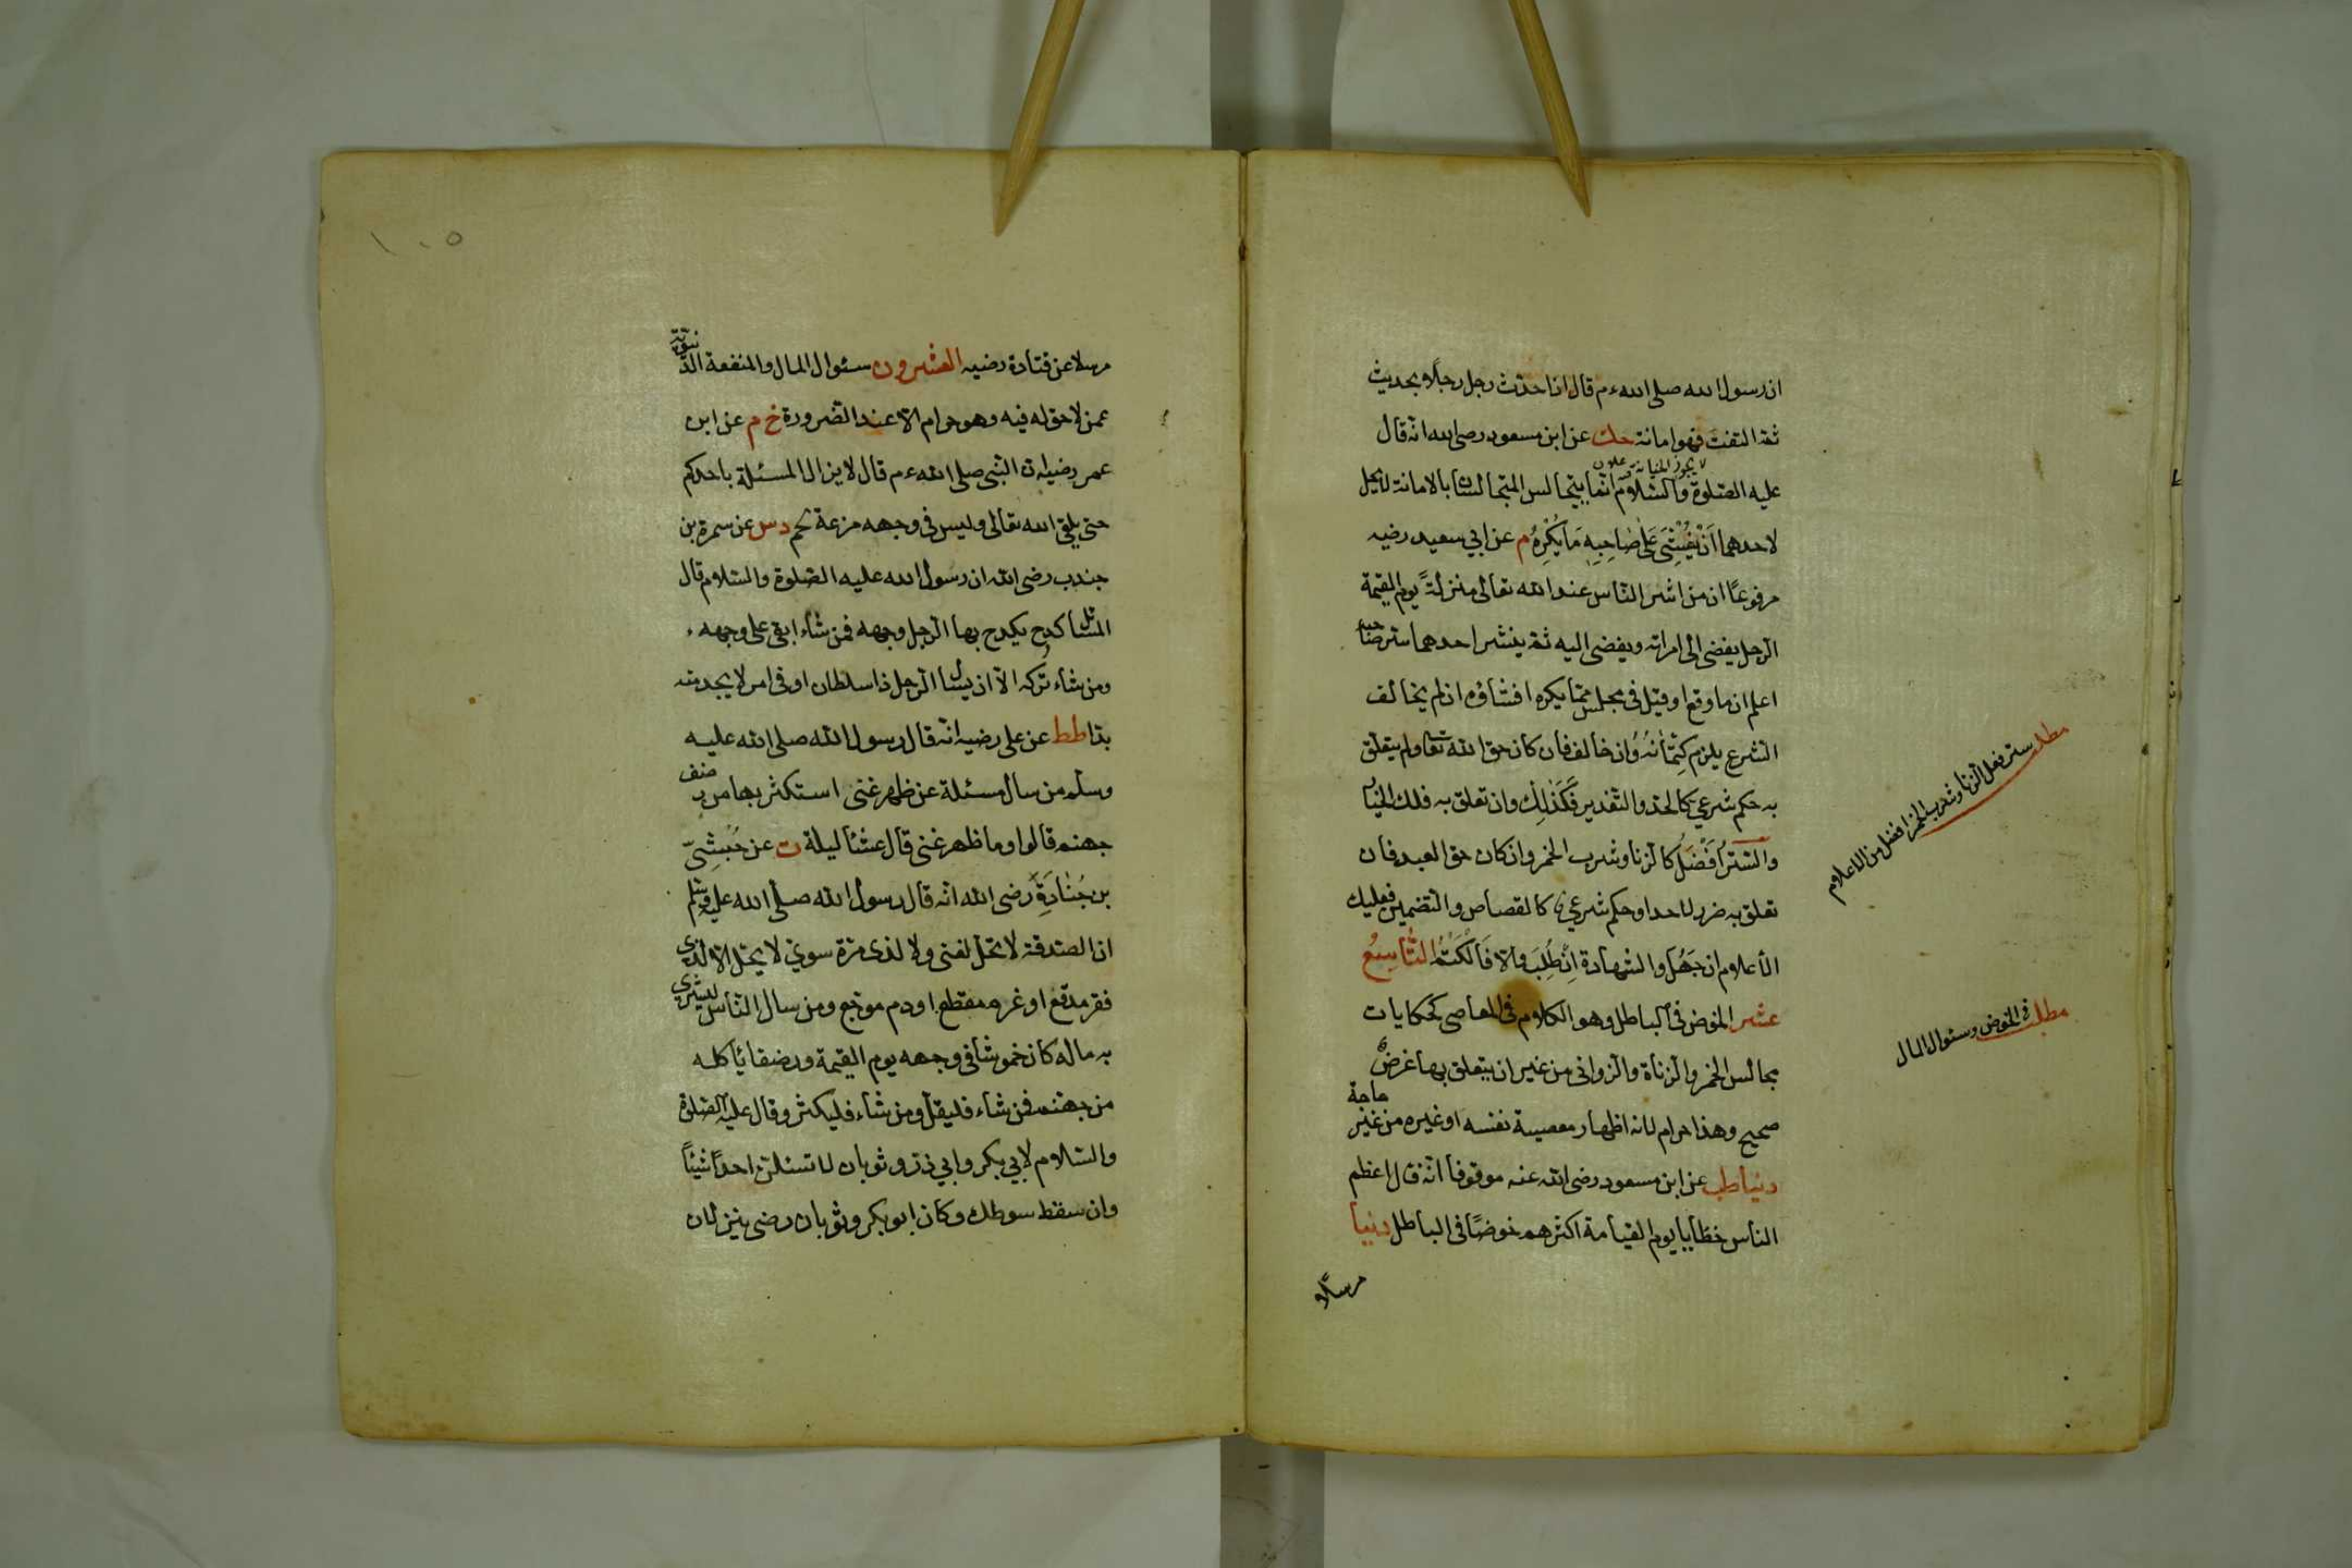 ان رسول الله صلى الله ءم قال اذا حدّث رجل رجلًا بحديث
ثمّ التفتَ فهو امانة حك عن ابن مسعود رضى الله انّه قال
لا يجوز الخيانة
عليه الصّلوة والسّلام انّما يتجالس المتجالسان بالامانة لا يحل
لاحدهما اَنْ يُفْشِىَ عَلَى صَاحِبِهِ مَا يُكْرِهُ م عن ابي سعيد رضيه
مرفوعًا ان من اشر النّاس عند الله تعالى منزلةً يوم القيمة
الرّجل يفضى الى امراته ويفضى اليه ثمّ ينشر احدهما سرّ صاحبه
اعلم ان ما وقع او قيل في مجلس ممّا يكره افشاؤه ان لم يخالف
الشّرع يلزم كِتْمَانُهُ وَان خالف فان كان حق الله تعا ولم يتعلّق
به حكم شرعي كالحدّ والتّغدير فَكَذٰلِكَ وان تعلّق به فلك الخيار
والسّترُ اَفْضَلُ كالزّنا وشرب الخمر وان كان حق العبد فان
تعلق به ضرر لاحد او حكم شرعي كالقصاص والتّضمين فعليك
الأعلام ان جَهُلَ والشّهادة اِنْ طُلِبَ والا فَالْكَتْمُ التَّاسِعُ
عشر الخوض في الباطل وهو الكلام في المعاصى كحكايات
مجالس الخمر والزّناة والزّوانى من غير ان يتعلق بها غرضٌ
صحيح وهذا حرام لانه اظهار معصية نفسه او غيره من غير حاجة
دنيا طب عن ابن مسعود رضى الله عنه موقوفا انّه قال اعظم
الناس خطايا يوم القيامة اكثرهم خوضًا في الباطل دنيا
مرسلًا
مطلب ستر فعل الزنا وشرب الخمر افضل من الاعلام
مطلب في الخوض وسئوال المال
١٠٥
مرسلا عن قتادة رضيه العشرون سئوال المال والمنفعة الدّنيويّة
عمن لا حق له فيه وهو حرام الّا عند الضّرورة خ م عن ابن
عمر رضيه ان النّبى صلى الله ءم قال لا يزال المسئلة باحدكم
حتى يلقى الله تعالى وليس في وجهه مزعة لحم دس عن سمرة بن
جندب رضى الله ان رسول الله عليه الصّلوة والسّلام قال
المسائل كدح يكدح بها الرّجل وجهه فمن شاء ابقى على وجهه
ومن شاء تركه الّا ان يسأل الرّجل ذا سلطان او في امر لا يجد منه
بدّا طط عن على رضيه انّه قال رسول الله صلى الله عليه
وسلم من سال مسئلة عن ظهر غنى استكثر بها من رضف
جهنم قالوا وما ظهر غنى قال عشا ليلة ت عن حُبْشِيّ
بن جُنَادَةِ رضى الله انّه قال رسول الله صلى الله عليه وسلم
ان الصّدقة لا تحلّ لغنى ولا لذى مرّة سوي لا يحل الّا لذى
فقر مدقع او غرم مقطع او دم موجع ومن سال النّاس ليثرى
به ماله كان خموشا في وجهه يوم القيمة ورضفا يأكله
من جهنم فمن شاء فليقل ومن شاء فليكثر وقال عليه الصّلوة
والسّلام لابي بكر وابي ذرّ وثوبان لا تسئلنّ احدًا شيئًا
وان سقط سوطك وكان ابو بكر وثوبان رضى ينزلان